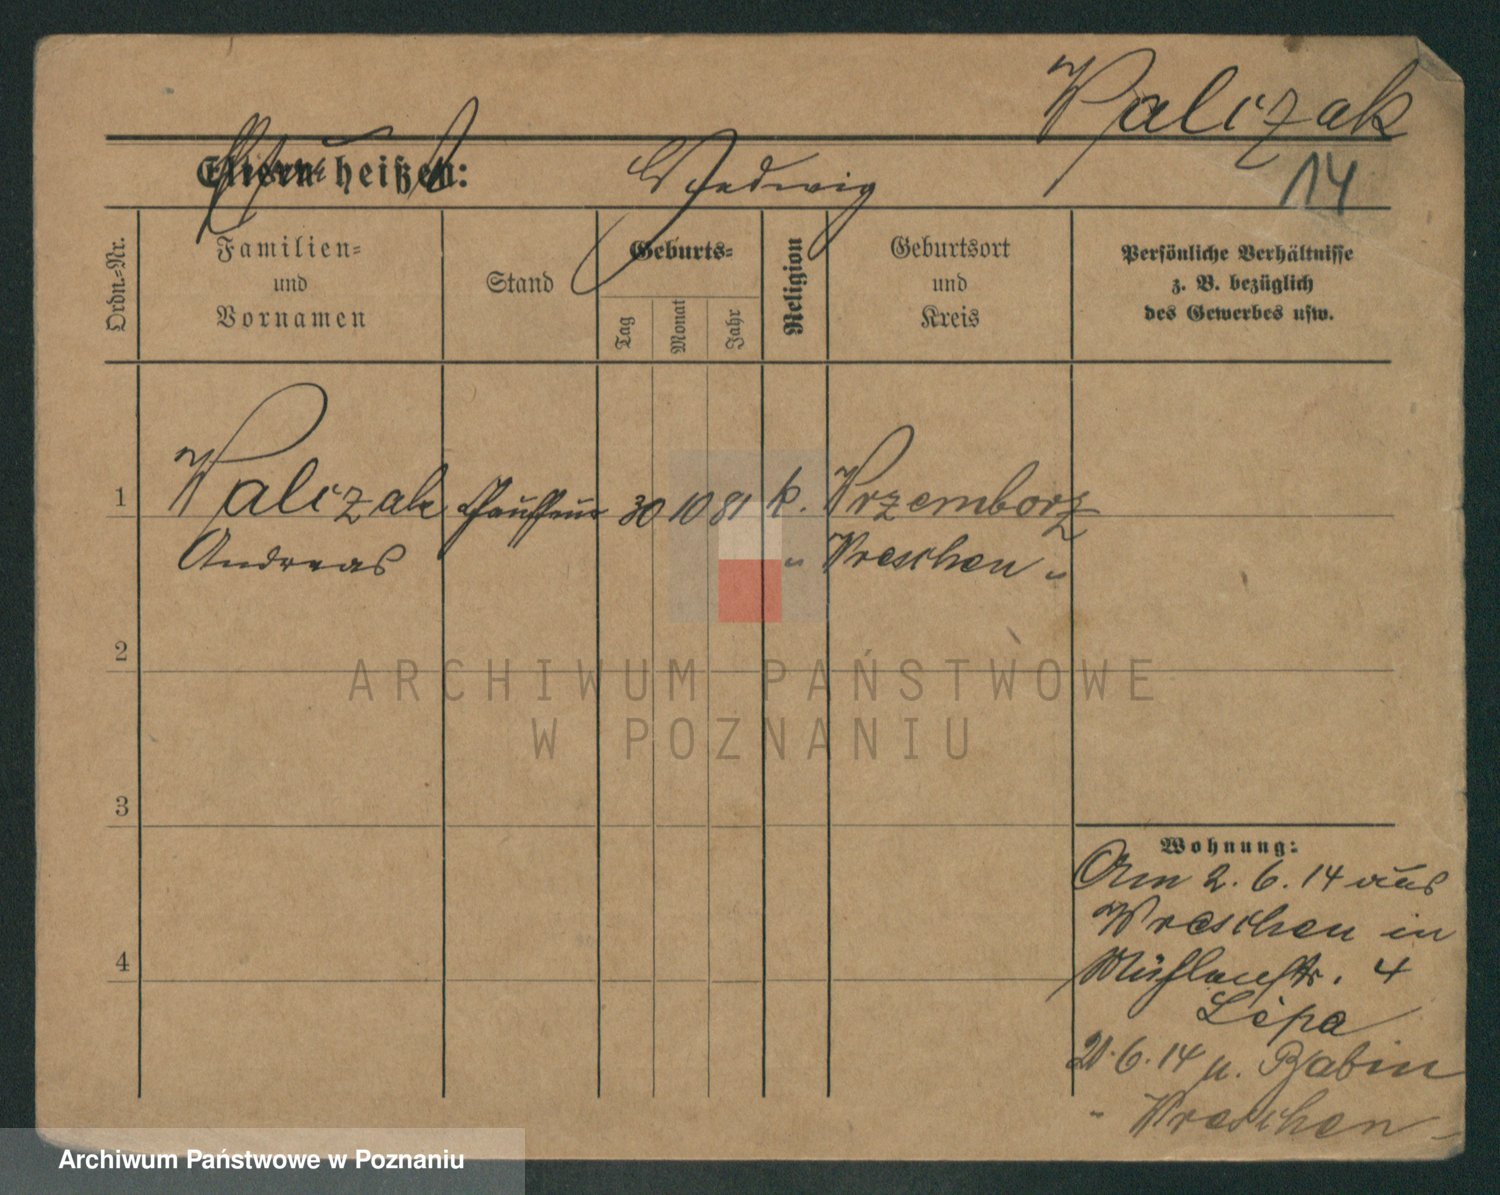 Walczak
14
Eltern heißen: Hedwig
Ordn.=Nr.
Familien=
und
Vornamen
Stand
Geburts=
Tag
Monat
Jahr
Religion
Geburtsort
und
Kreis
Persönliche Verhältnisse
z. B. bezüglich
des Gewerbes usw.
1 Walczak Chauffeur 30 10 81 k. Wrzemborz
Andreas " Wreschen "
2
3
4
Wohnung:
Am 2. 6. 14 aus
Wreschen in
Mühlenstr. 4
Lipa
21. 6. 14 n. Babin
" Wreschen
ARCHIWUM PAŃSTWOWE
W POZNANIU
Archiwum Państwowe w Poznaniu